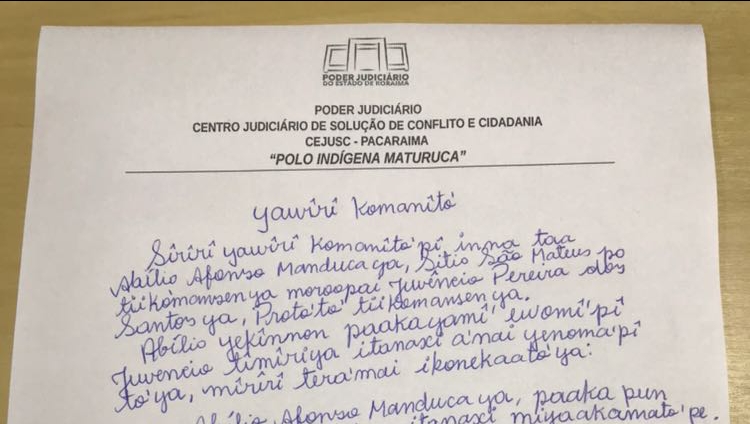 PODER JUDICIÁRIO
DO ESTADO DE RORAIMA
PODER JUDICIÁRIO
CENTRO JUDICIÁRIO DE SOLUÇÃO DE CONFLITO E CIDADANIA
CEJUSC - PACARAIMA
“POLO INDÍGENA MATURUCA”
yawîrî Komanîtó
Sîrîrî yawîrî Komanîto'pî inna taa
Abílio Afonso Manduca ya, Sitio São Mateus po
tîîkomansen ya moroopai Juvêncio Pereira dos
Santos ya, Proto'to' tîîkomansen ya.
Abílio yekînnon paakayamî' ewomî'pî
Juvencio tîmîrîya itanaxi a'nai yenoma'pî
to'ya, mîrîrî tera'mai ikonekaato'ya:
Abílio Afonso Manduca ya, paaka pun
itanaxi miyaakamato'pe.